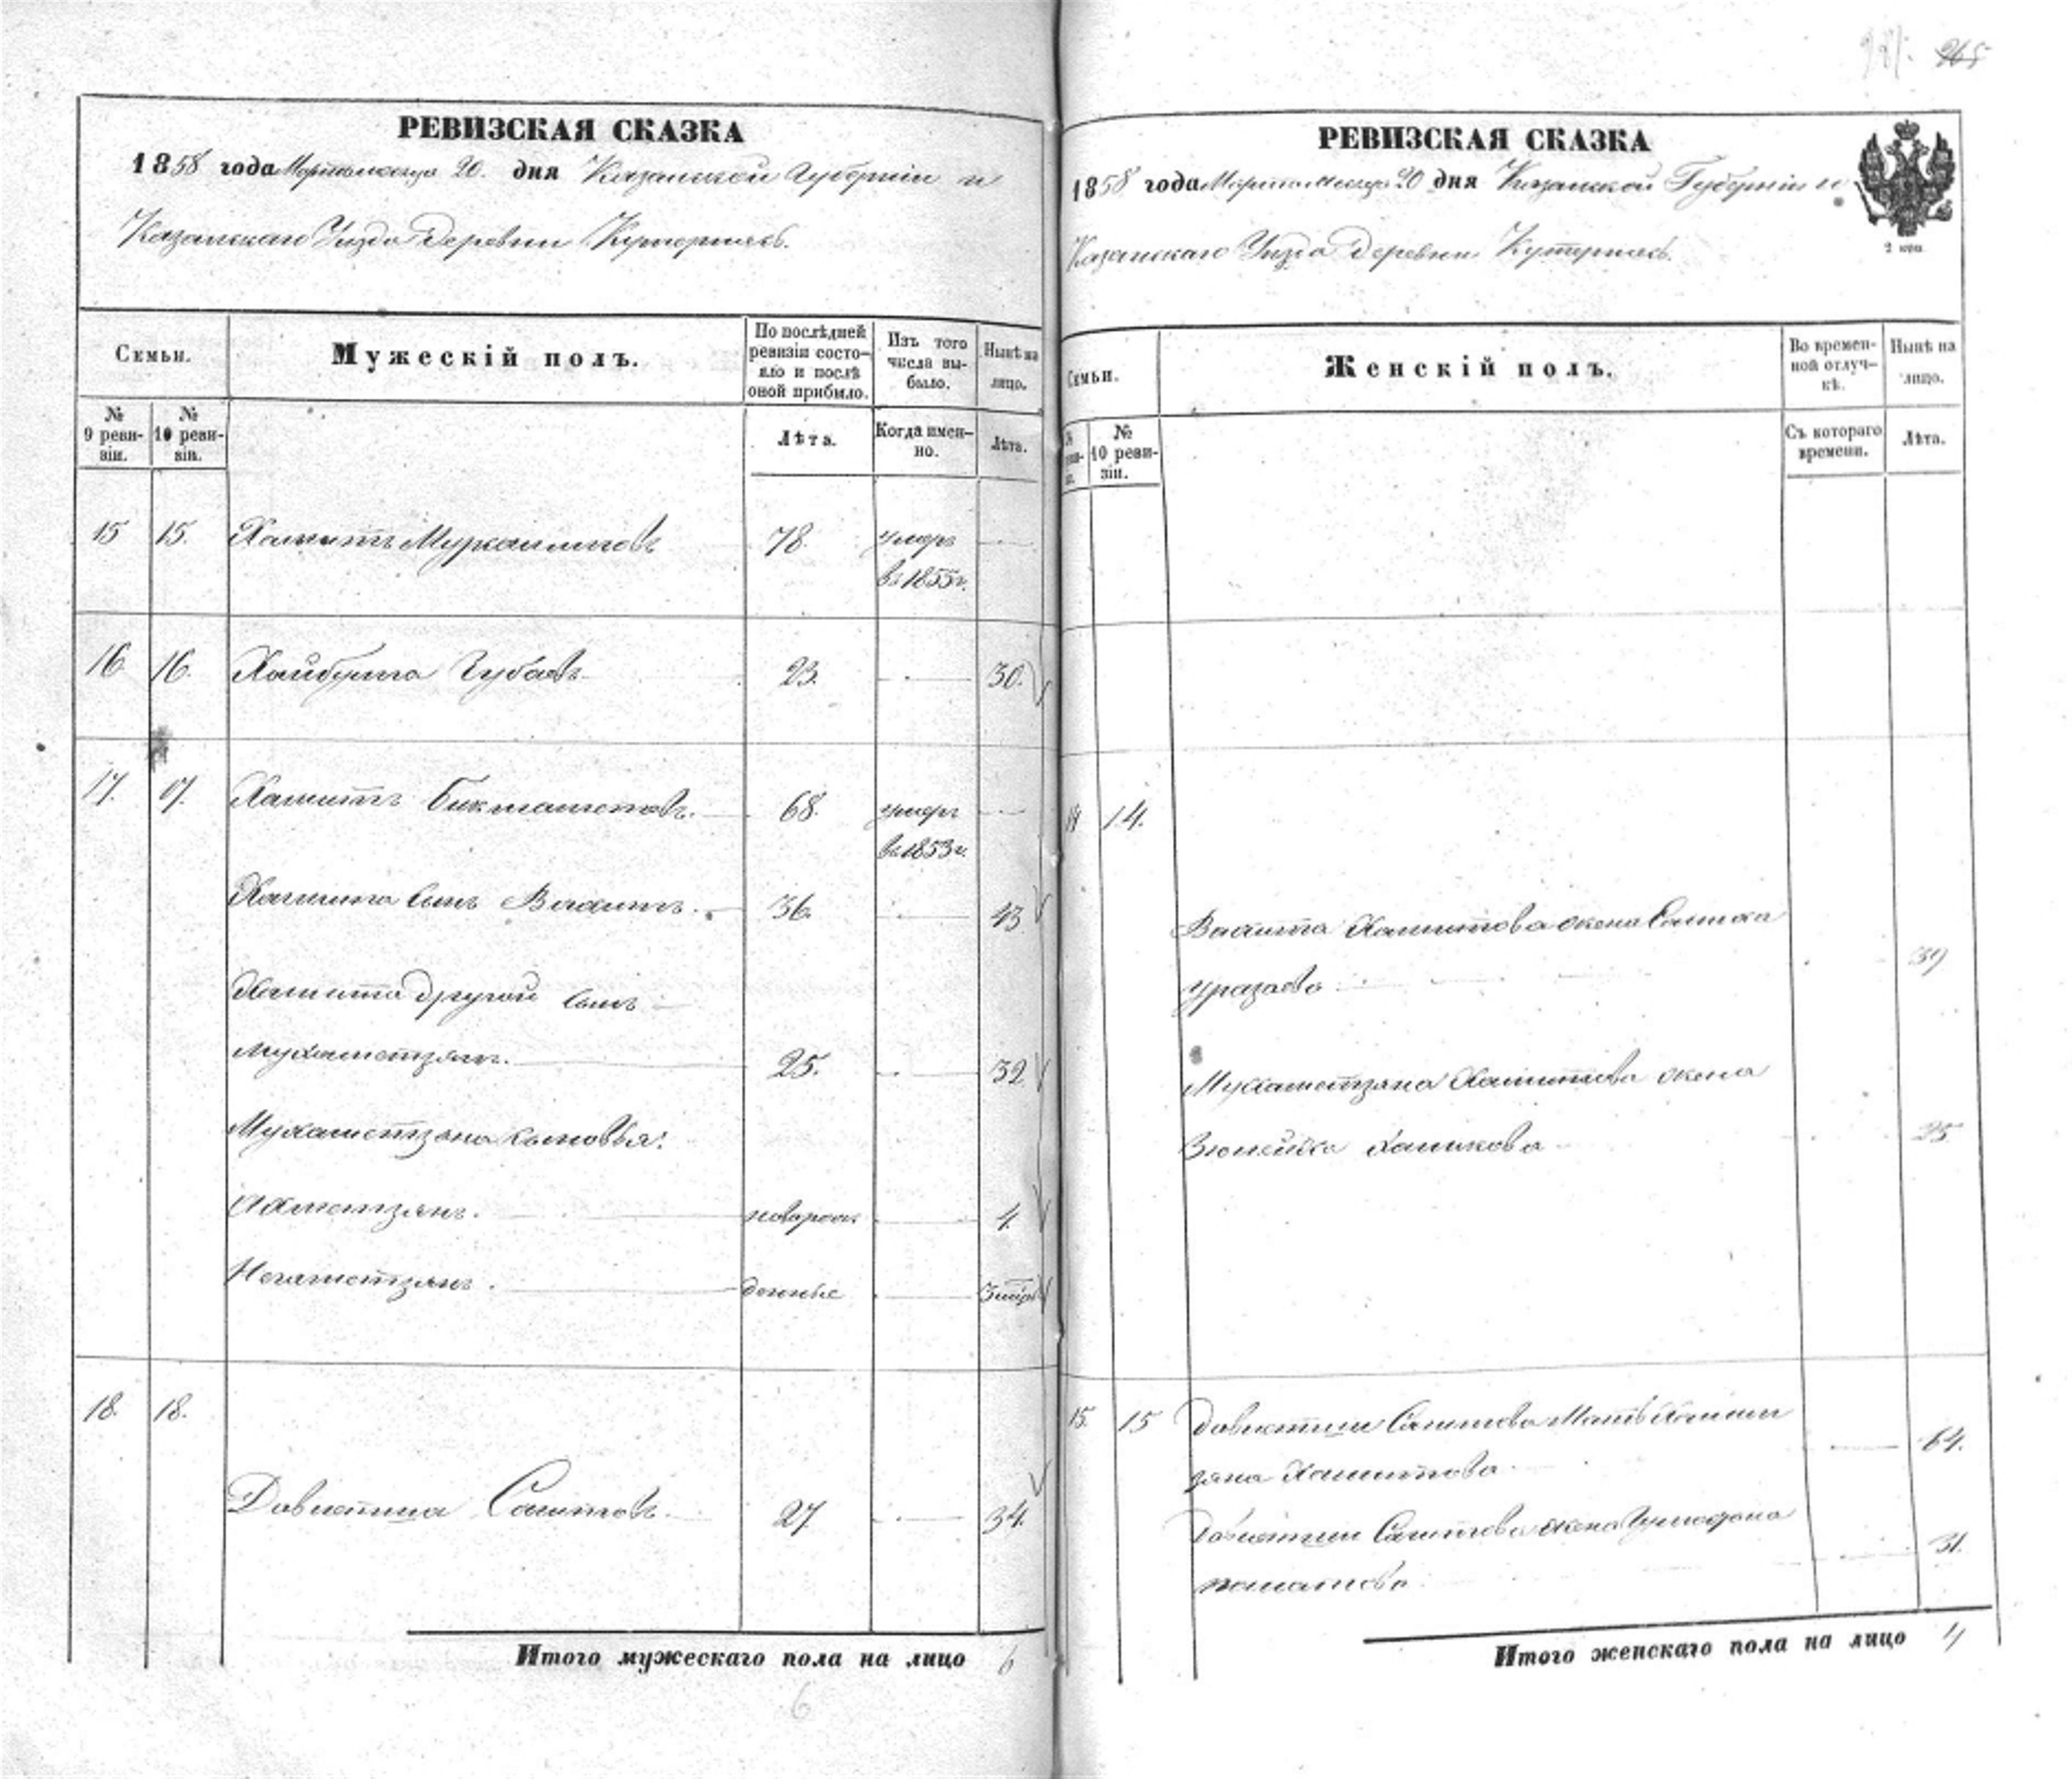 265
РЕВИЗСКАЯ СКАЗКА
1858 года Марта месяца 20. дня Казанской Губернiи и
Казанскаго Уѣзда деревни Кутернясъ.
Семьи.
Мужескiй полъ.
По послѣдней ревизiи состояло и послѣ оной прибыло.
Изъ того числа выбыло.
Нынѣ на лицо.
№ 9 ревизiи.
№ 10 ревизiи.
Лѣта.
Когда именно.
Лѣта.
15 15. Хамитъ 78. умеръ
въ 1855 г.
16 16. Хайбулла Губаевъ 23. 30.
17. 17. Хамитъ Бикташевъ. 68. умеръ
въ 1853 г.
Хамита сынъ Вахитъ. 36. 43
Хамита другой сынъ
Мухаметзянъ. 25. 32
Мухаметзяна сыновья:
Ахметзянъ. новорож 4.
Негаметзянъ. денные 3
18. 18.
Давлетша Сагитовъ. 27. 34.
Итого мужескаго пола на лицо 6
6
РЕВИЗСКАЯ СКАЗКА
1858 года Марта месяца 20 дня Казанской Губернiи и
Казанскаго Уѣзда деревни Кутернясъ.
2 коп.
Семьи.
Женскiй полъ.
Во временной отлучкѣ.
Нынѣ на лицо.
№ 10 ревизiи.
Съ котораго времени.
Лѣта.
14 14.
Вахита Хамитова жена
Уразаева 39
Мухаметзяна Хамитова жена
Зюлейха 25
15. 15 Давлетши Сагитова Мать
зяна Хамитова 64.
Давлетши Сагитова жена
31.
Итого женскаго пола на лицо 4